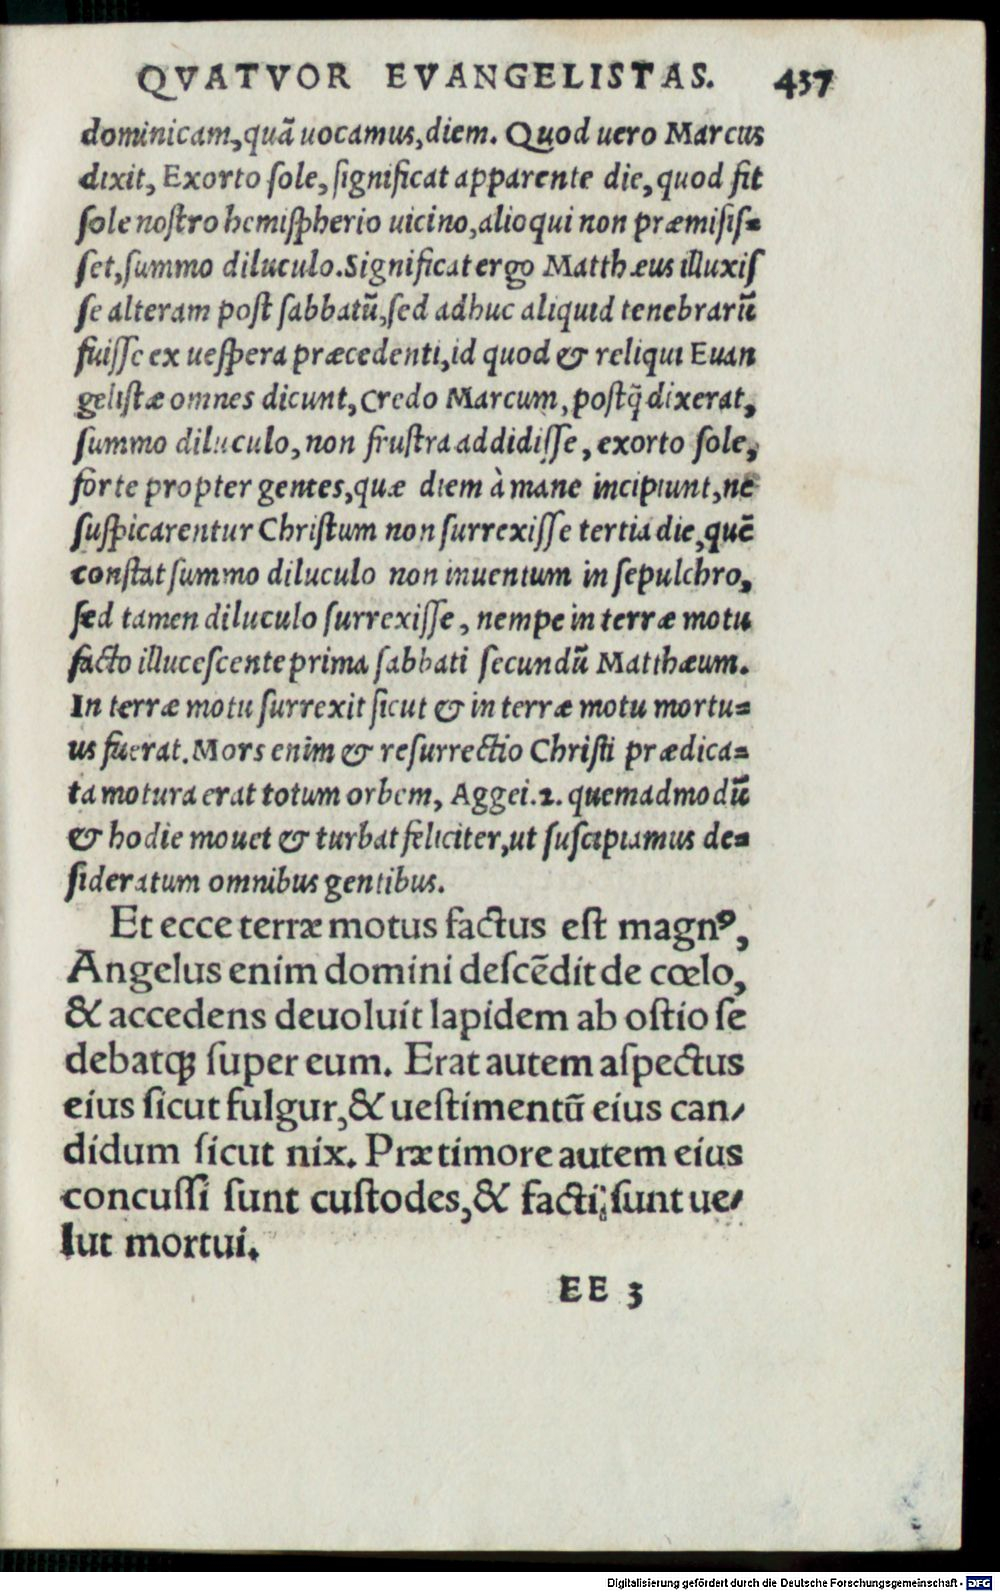 QVATVOR EVANGELISTAS. 437
dominicam, quā uocamus, diem. Quod uero Marcus
dixit, Exorto ſole, ſignificat apparente die, quod fit
ſole noſtro hemiſpherio uicino, alioqui non præmiſiſ=
ſet, ſummo diluculo. Significat ergo Matthæus illuxiſ
ſe alteram poſt ſabbatū, ſed adhuc aliquid tenebrarū
fuiſſe ex ueſpera præcedenti, id quod & reliqui Euan
geliſtæ omnes dicunt, Credo Marcum, poſtq̄ dixerat,
ſummo diluculo, non fruſtra addidiſſe, exorto ſole,
forte propter gentes, quæ diem à mane incipiunt, ne
ſuſpicarentur Chriſtum non ſurrexiſſe tertia die, quē
conſtat ſummo diluculo non inuentum in ſepulchro,
ſed tamen diluculo ſurrexiſſe, nempe in terræ motu
facto illuceſcente prima ſabbati ſecundū Matthæum.
In terræ motu ſurrexit ſicut & in terræ motu mortu=
us fuerat. Mors enim & reſurrectio Chriſti prædica=
ta motura erat totum orbem, Aggei. 2. quemadmodū
& hodie mouet & turbat feliciter, ut ſuſcipiamus de=
ſideratum omnibus gentibus.
Et ecce terræ motus factus eſt magnꝰ,
Angelus enim domini deſcēdit de cœlo,
& accedens deuoluit lapidem ab oſtio ſe
debatqꝫ ſuper eum. Erat autem aſpectus
eius ſicut fulgur, & ueſtimentū eius can/
didum ſicut nix. Præ timore autem eius
concuſſi ſunt cuſtodes, & facti ſunt ue/
lut mortui.
EE 3
Digitalisierung gefördert durch die Deutsche Forschungsgemeinschaft - DFG